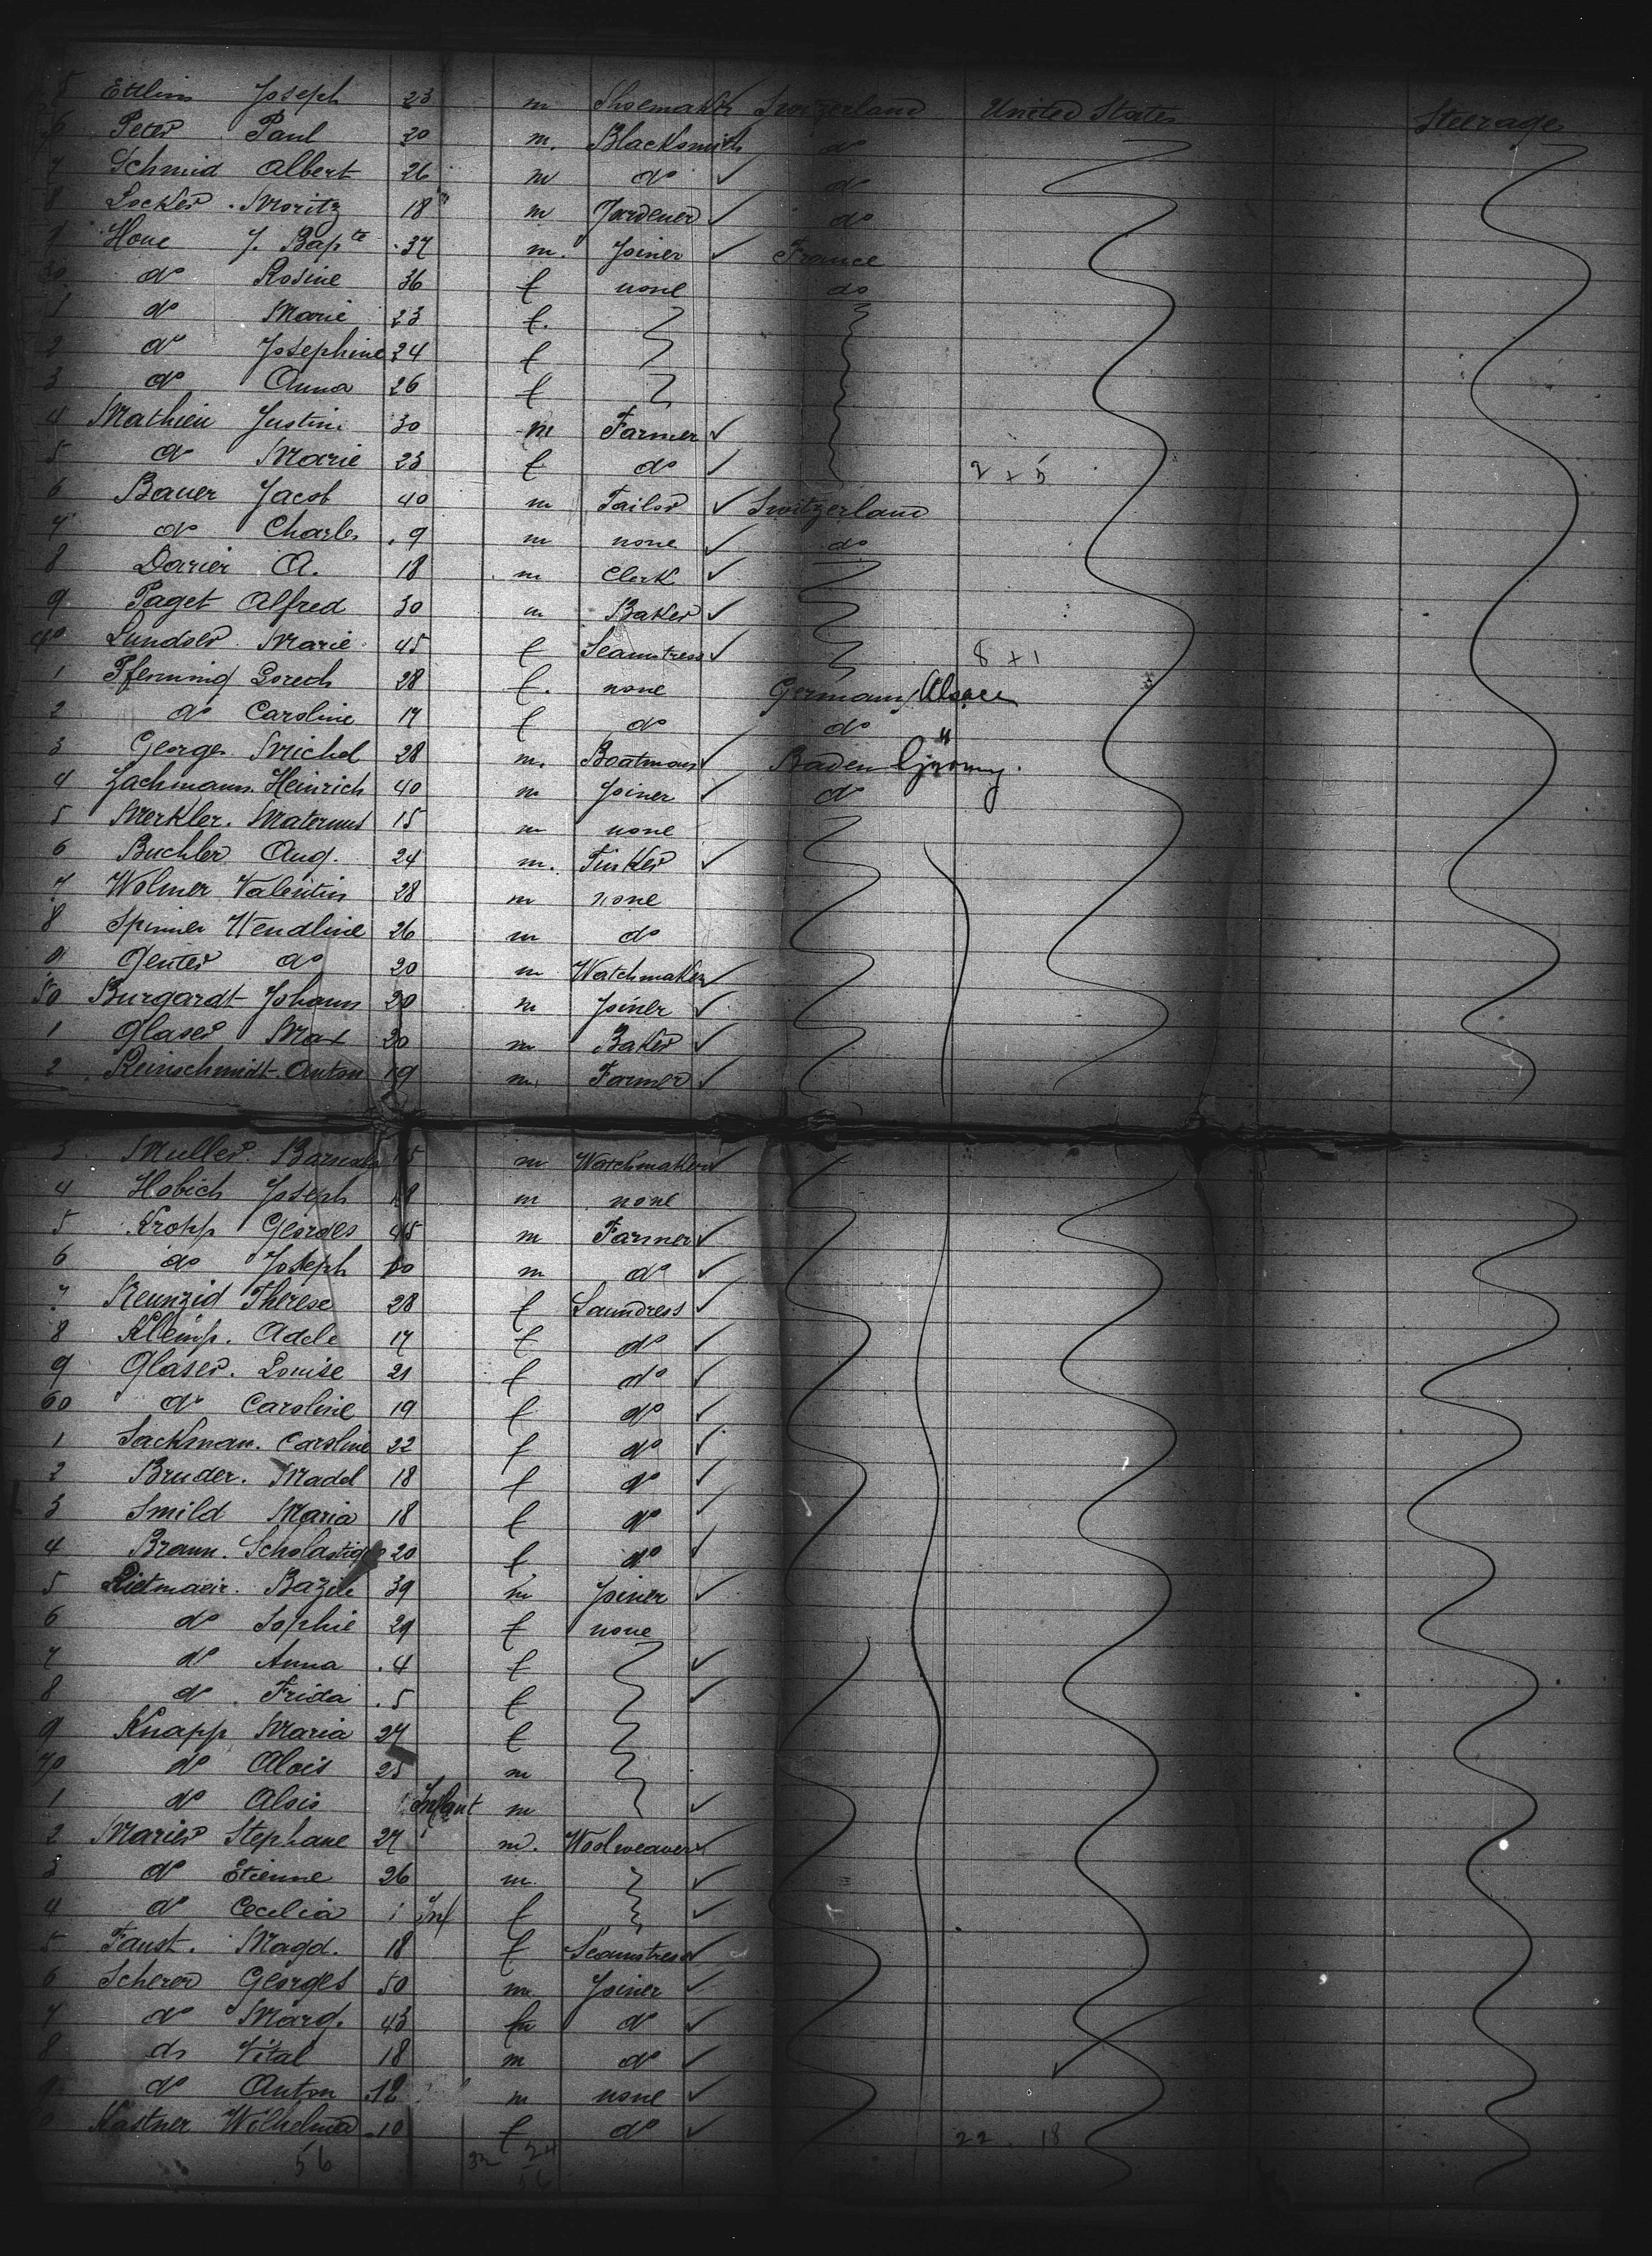 5 Ettlin Joseph 23 m Shoemaker ✓ Switzerland United States Steerage
6 Peter Paul 20 m. Blacksmith do
7 Schmid Albert 26 m do ✓ do
8 Locker Moritz 18 m Gardener ✓ do
9 Houe J. Bapte 37 m. Joiner ✓ France
30 do Rosine 36 f none do
1 do Marie 23 f.
2 do Josephine 24 f
3 do Anna 26 f
4 Mathieu Justin 30 m Farmer ✓
5 do Marie 23 f do ✓ 2 + 5
6 Bauer Jacob 40 m Tailor ✓ Switzerland
7 do Charles 9 m none ✓ do
8 Darier A. 18 m Clerk ✓
9 Paget Alfred 30 m Baker ✓
40 Marie 45 f Seamstress ✓ 8 + 1
1 Pfenning 28 f. none Germany/Alsace
2 do Caroline 17 f do do "
3 Georges Michel 28 m. Boatman ✓ Baden Germy.
4 Zachmann Heinrich 40 m Joiner ✓ do
5 Merkler. Maternus 15 m none
6 Buchler Aug. 24 m. Tinker ✓
7 Wolmer Valentin 28 m none
8 Spinner Wendline 26 m do
9 Genter do 20 m Watchmaker ✓
50 Burgardt Johann 20 m Joiner ✓
1 Glaser Max 20 m Baker ✓
2 Reinschmidt. Anton 19 m. Farmer ✓
3 Muller m Watchmaker ✓
4 Hobich Joseph m none
5 Kropp Georges 45 m Farmer ✓
6 do Joseph m do ✓
7 Therese 28 f Laundress ✓
8 Klemp. Adele 17 f do ✓
9 Glaser. Louise 21 f do ✓
60 do Caroline 19 f do ✓
1 Sackman. Caroline 22 f do ✓
2 Bruder. Madel 18 f do ✓
3 Smild Maria 18 f do ✓
4 Braun. Scholastique 20 f do ✓
5 Bazile 39 m Joiner ✓
6 do Sophie 29 f none
7 do Anna .4 f ✓
8 do Frida .5 f ✓
9 Knapp Maria 27 f
70 do Alois 25 m
1 do Alois Infant m ✓
2 Marier Stephane 27 m. Woolweaver ✓
3 do Etienne 26 m ✓
4 do Cecilia 1 Inf f ✓
5 Faust. Magd. 18 f Seamstress ✓
6 Scherer Georges 50 m Joiner ✓
7 do Marg. 43 do ✓
8 do Vital 18 m do ✓
9 do Anton .12 m none ✓
Kastner Wilhelmina .10 f do ✓
56 32 24 22 . 18
56